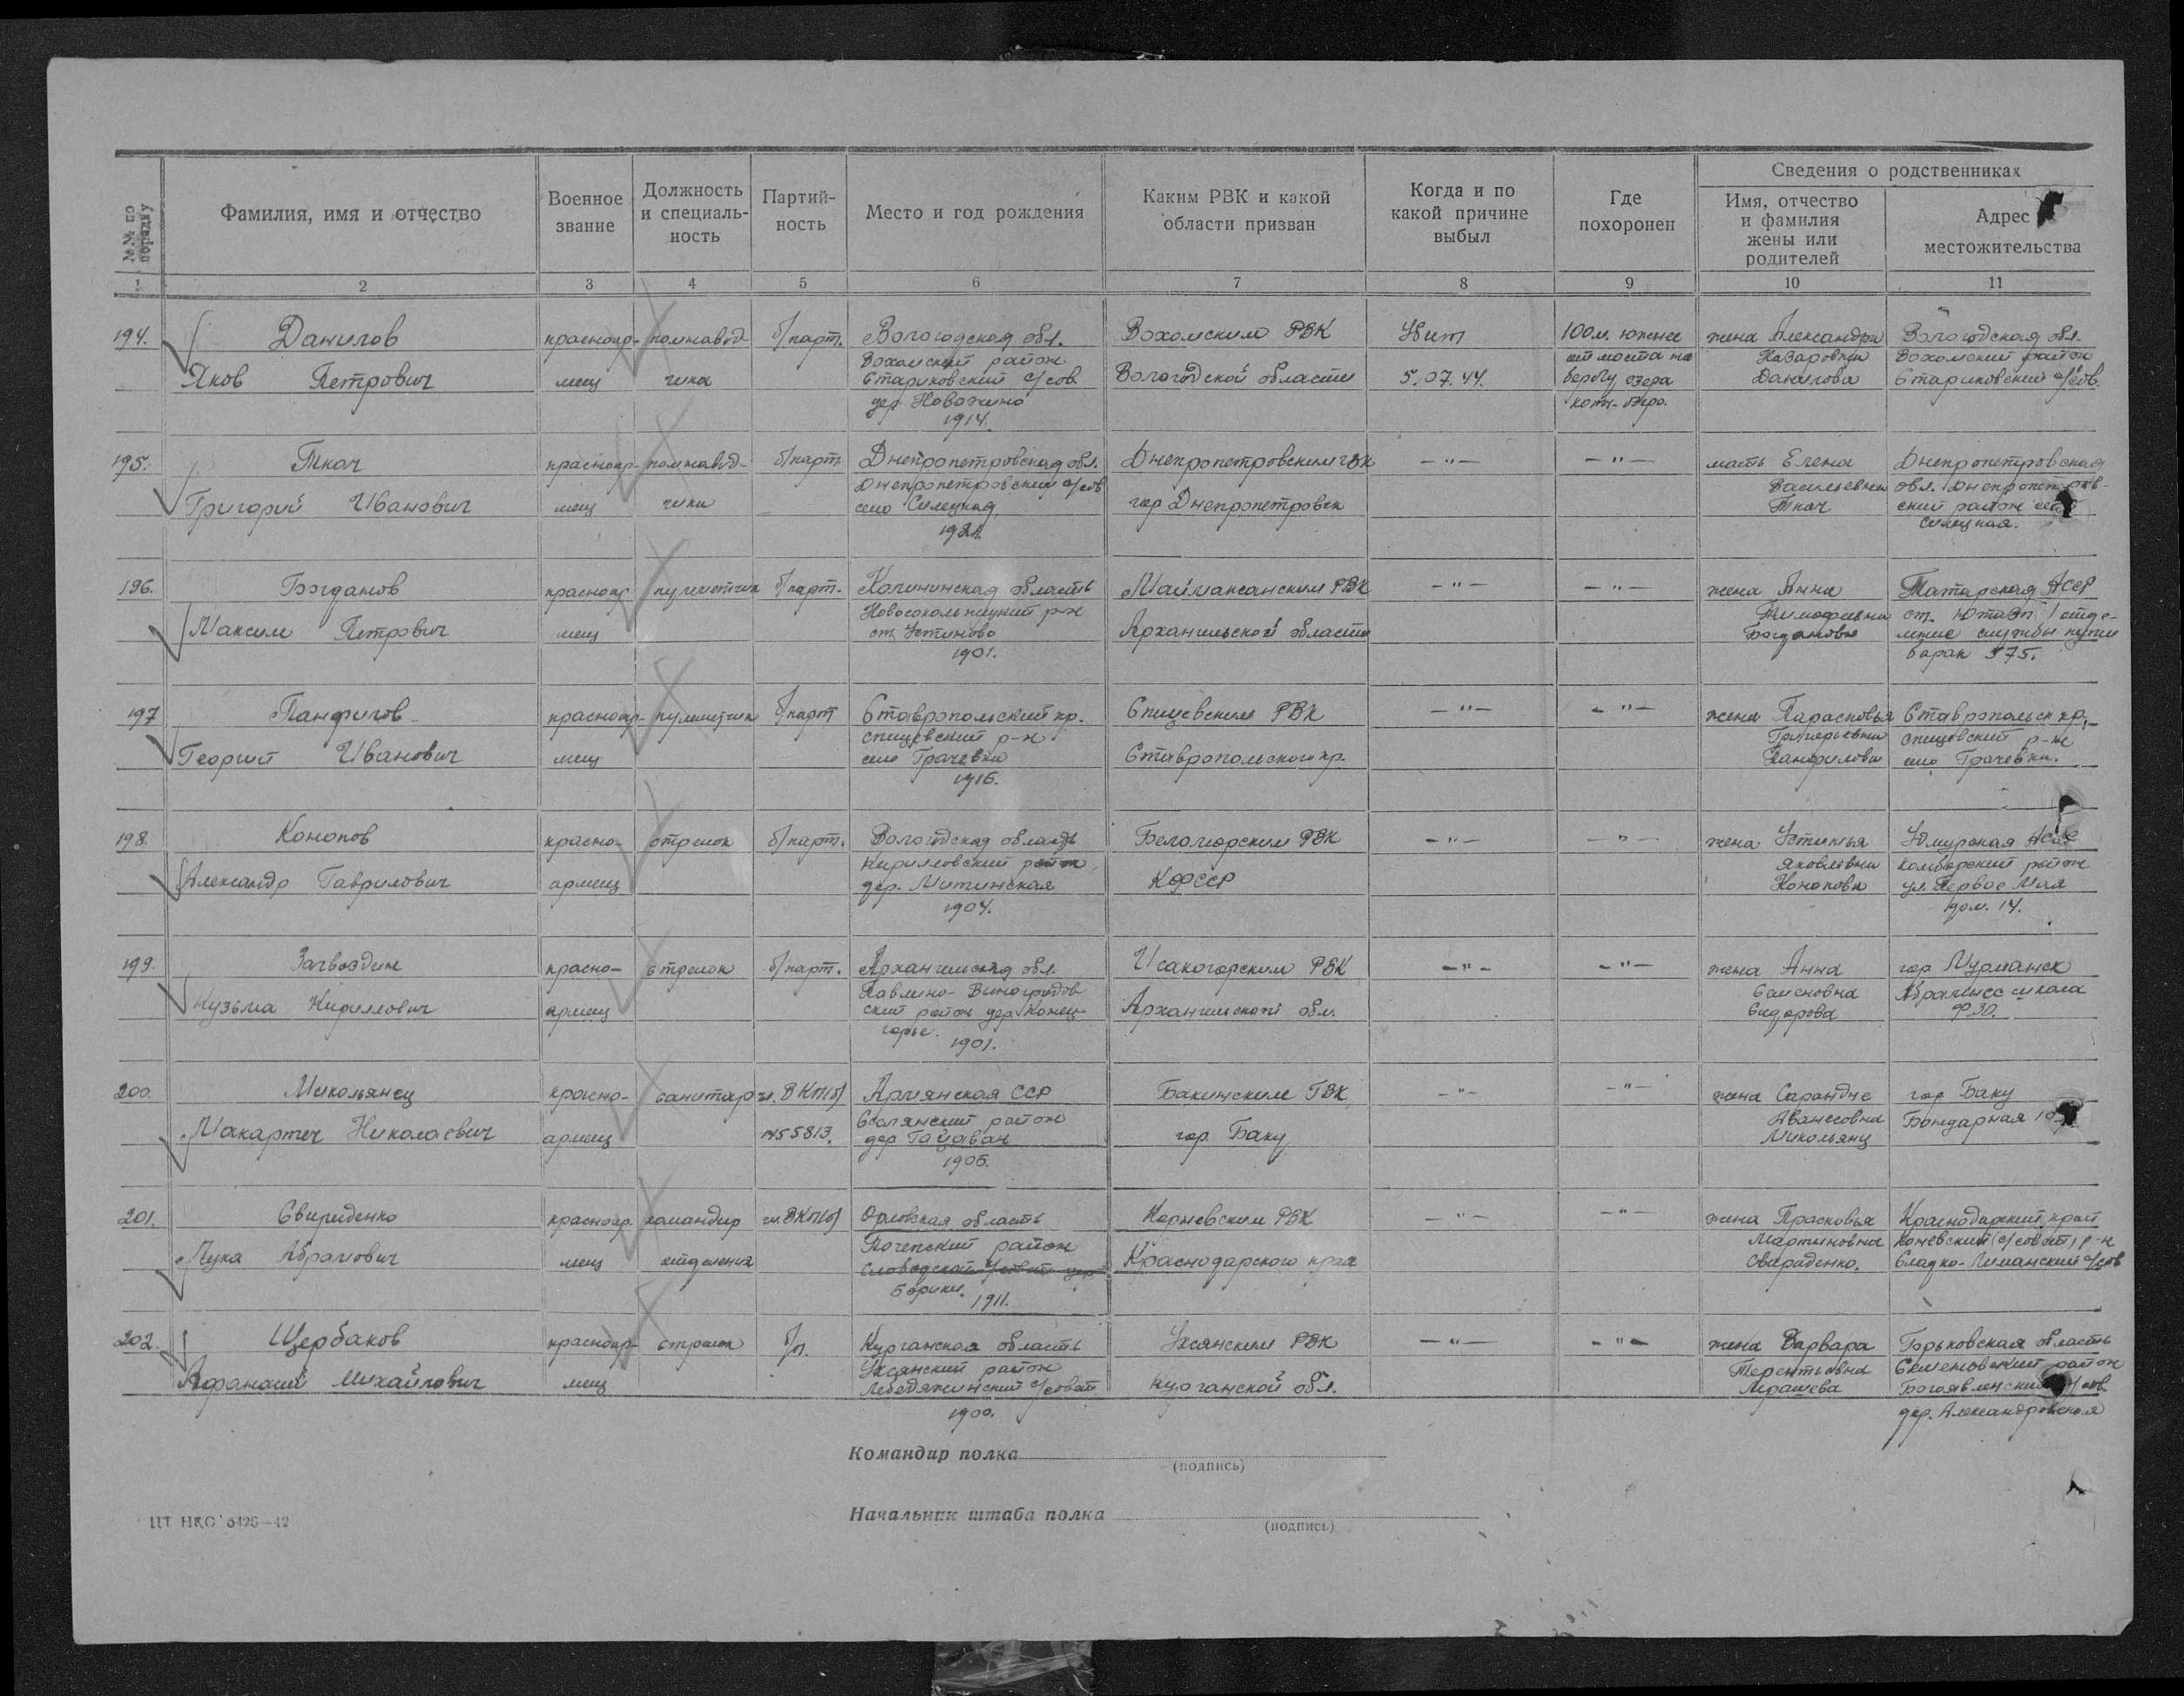 №№ по порядку
Фамилия, имя и отчество
Военное звание
Должность и специаль-ность
Партий-ность
Место и год рождения
Каким РВК и какой области призван
Когда и по какой причине выбыл
Где похоронен
Сведения о родственниках
Имя, отчество и фамилия жены или родителей
Адрес местожительства
1 2 3 4 5 6 7 8 9 10 11
194. Данилов красноар- помнавод б/парт. Вологодская обл. Вохомским РВК Убит 100 м. южнее жена Александра Вологодская обл.
Вохомский район от моста на Назаровна Вохомский район
Яков Петрович меец чика Стариковский с/сов. Вологодской области 5.07.44. берегу озера Данилова Стариковский с/сов.
дер Новожино
1914.
195. Ткач красноар- помнавод- б/парт Днепропетровская обл. Днепропетровским ГВК -"- -"- мать Елена Днепропетровская
Днепропетровский с/сов Васильевна обл. Днепропетров-
Григорий Иванович меец чика село гор Днепропетровск Ткач ский район
1921.
196. Богданов красноар пулеметчик б/парт. Калининская область Маймаксанским РВК -"- -"- жена Анна Татарская АССР
Новосокольницкий р-н Тимофеевна ст. 1 отде-
Максим Петрович меец ст. Устиново Архангельской области Богданова ление службы пути
1901. барак 375.
197 Панфилов красноар- пулеметчик б/парт Ставропольский кр. Спицевским РВК -"- -"- жена Парасковья Ставропольск кр.
Спицевский р-н Григорьевна Спицевский р-н
Георгий Иванович меец село Грачевка Ставропольского кр. Панфилова село Грачевка.
1916.
198. Конопов красно- стрелок б/парт. Вологодская область Беломорским РВК -"- -"- жена Устинья Удмурская АССР
Кирилловский район Яковлевна Камбарский район
Александр Гаврилович армеец дер. Митинская КФССР Конопова ул. Первое Мая
1904. дом. 14.
199. Загвоздин красно- стрелок б/парт. Архангельская обл. Исакогорским РВК -"- -"- жена Анна гор Мурманск
Павлино-Виноградов- Семеновна
Кузьма Кирилович армеец ский район дер Конец- Архангельской обл. Сидорова школа
горье.
1901.
200. Микольянец красно- санитар чл. ВКП(б) Армянская ССР Бакинским ГВК -"- -"- жена гор Баку
район Аванесовна Бондарная
Макартич Николаевич армеец дер гор Баку Микольянц
1906.
201. Свириденко красноар. командир чл. ВКП(б) Орловская область РВК -"- -"- жена Прасковья Краснодарский край
Почепский район Мартыновна
Лука Абрамович меец отделения Краснодарского края Свариденко. Сладко-Лиманский с/сов
1911.
202. Щербаков красноар- стрелок б/п. Курганская область Уксянским РВК -"- -"- жена Варвара Горьковская область
Уксянский район Терентьевна Семеновский район
Афанасий Михайлович меец Лебедяжинский с/совет Курганской обл. Богоявленский с/сов.
1900. дер. Александровская
Командир полка
(подпись)
Начальник штаба полка
(подпись)